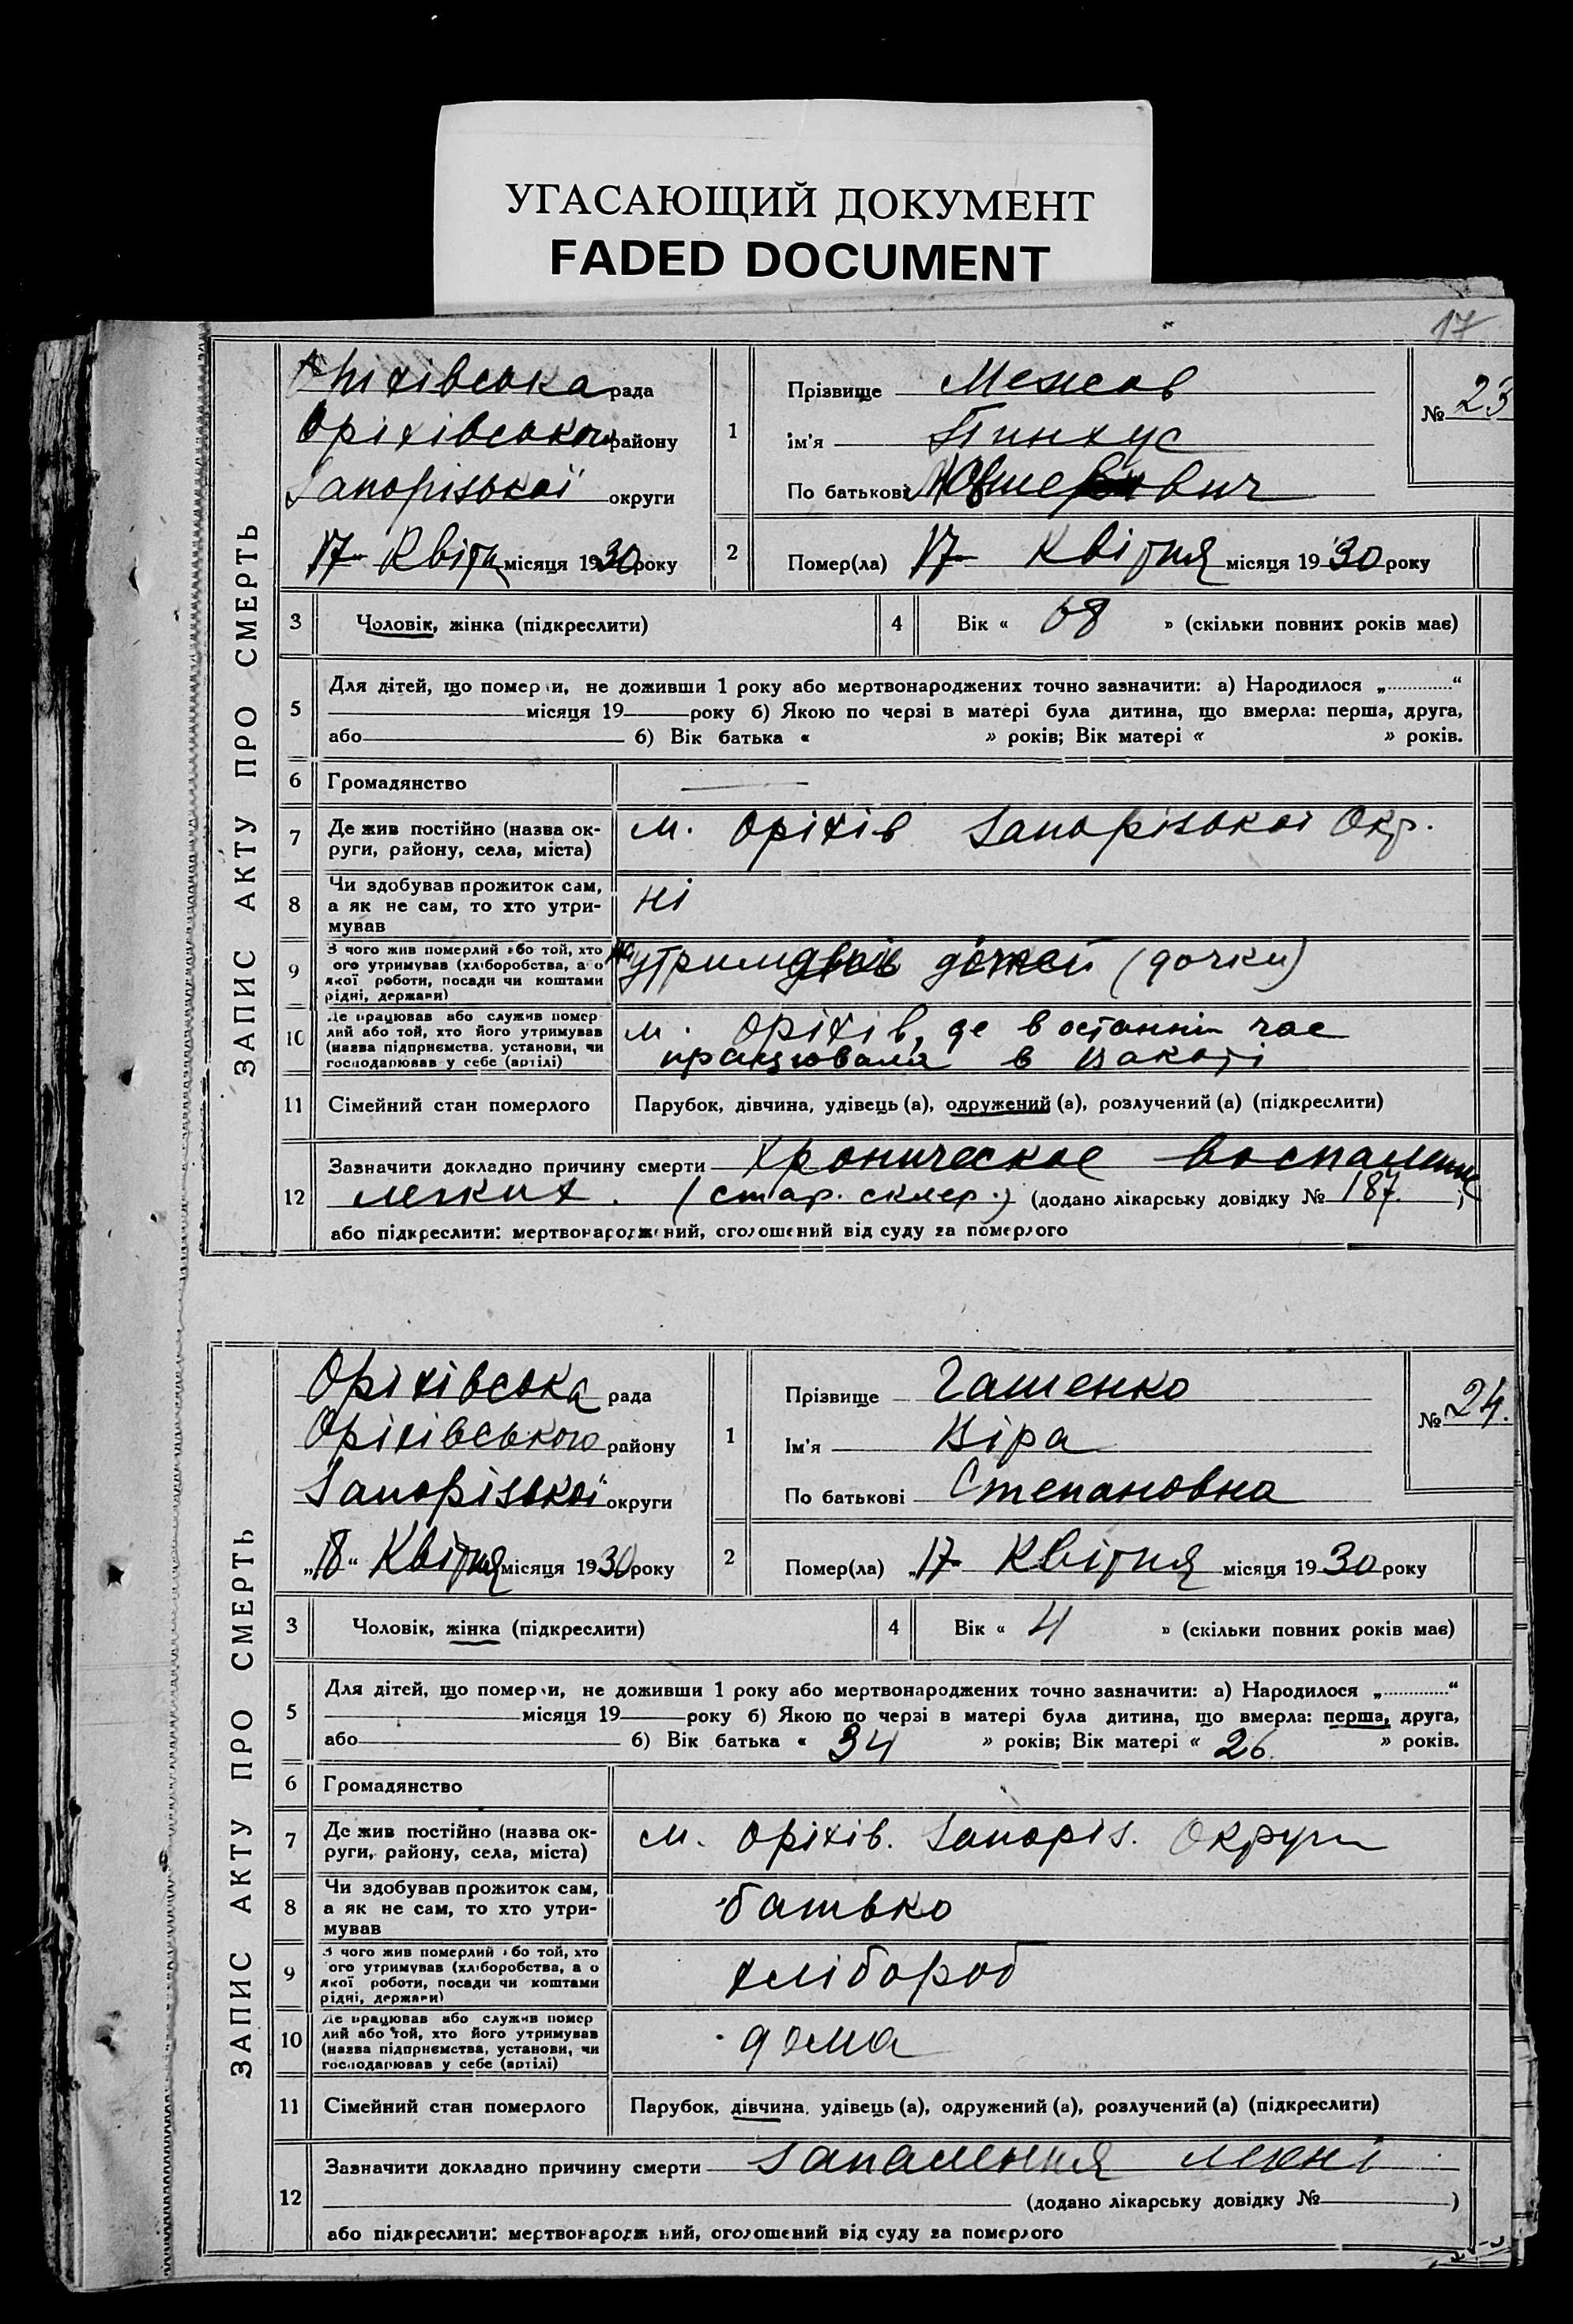 УГАСАЮЩИЙ ДОКУМЕНТ
FADED DOCUMENT
17
ЗАПИС АКТУ ПРО СМЕРТЬ
Оріхівська рада
Оріхівського району
Запорізької округи
17 Квітн місяця 1930 року
1
Прізвище Межов
ім'я Пинхус
По батькові вич
№ 23
2
Помер(ла) 17 Квітня місяця 1930 року
3 Чоловік, жінка (підкреслити)
4 Вік « 68 » (скільки повних років має)
5
Для дітей, що померли, не доживши 1 року або мертвонароджених точно зазначити: а) Народилося „ “
місяця 19 року б) Якою по черзі в матері була дитина, що вмерла: перша, друга,
або б) Вік батька « » років; Вік матері « » років.
6 Громадянство —
7
Де жив постійно (назва ок-
руги, району, села, міста)
м. Оріхів Запорізької Окр.
8
Чи здобував прожиток сам,
а як не сам, то хто утри-
мував
ні
9
З чого жив померлий або той, хто
ого утримував (хліборобства, а о
якої роботи, посади чи коштами
рідні, держави)
(дочки)
10
Де працював або служив помер
лий або той, хто його утримував
(назва підприємства, установи, чи
господарював у себе (артілі)
м. Оріхів, де в останнім час
працювала в
11 Сімейний стан померлого
Парубок, дівчина, удівець (а), одружений (а), розлучений (а) (підкреслити)
12
Зазначити докладно причину смерти Хроническое воспаление
легких. (стар. склер.) (додано лікарську довідку № 187. )
або підкреслити: мертвонароджений, оголошений від суду за померлого
ЗАПИС АКТУ ПРО СМЕРТЬ
Оріхівська рада
Оріхівського району
Запорізької округи
„18“ Квітня місяця 1930 року
1
Прізвище Гашенко
Ім'я Віра
По батькові Степановна
№ 24.
2
Помер(ла) „17 Квітня місяця 1930 року
3 Чоловік, жінка (підкреслити)
4 Вік « 4 » (скільки повних років має)
5
Для дітей, що померли, не доживши 1 року або мертвонароджених точно зазначити: а) Народилося „ “
місяця 19 року б) Якою по черзі в матері була дитина, що вмерла: перша, друга,
або б) Вік батька « 34 » років; Вік матері « 26. » років.
6 Громадянство
7
Де жив постійно (назва ок-
руги, району, села, міста)
м. Оріхів. Запоріз. Округи
8
Чи здобував прожиток сам,
а як не сам, то хто утри-
мував
батько
9
З чого жив померлий або той, хто
ого утримував (хліборобства, а о
якої роботи, посади чи коштами
рідні, держави)
хлібороб
10
Де працював або служив помер
лий або той, хто його утримував
(назва підприємства, установи, чи
господарював у себе (артілі)
дома
11 Сімейний стан померлого
Парубок, дівчина, удівець (а), одружений (а), розлучений (а) (підкреслити)
12
Зазначити докладно причину смерти Запалення легені
(додано лікарську довідку № )
або підкреслити: мертвонародж ний, оголошений від суду за померлого